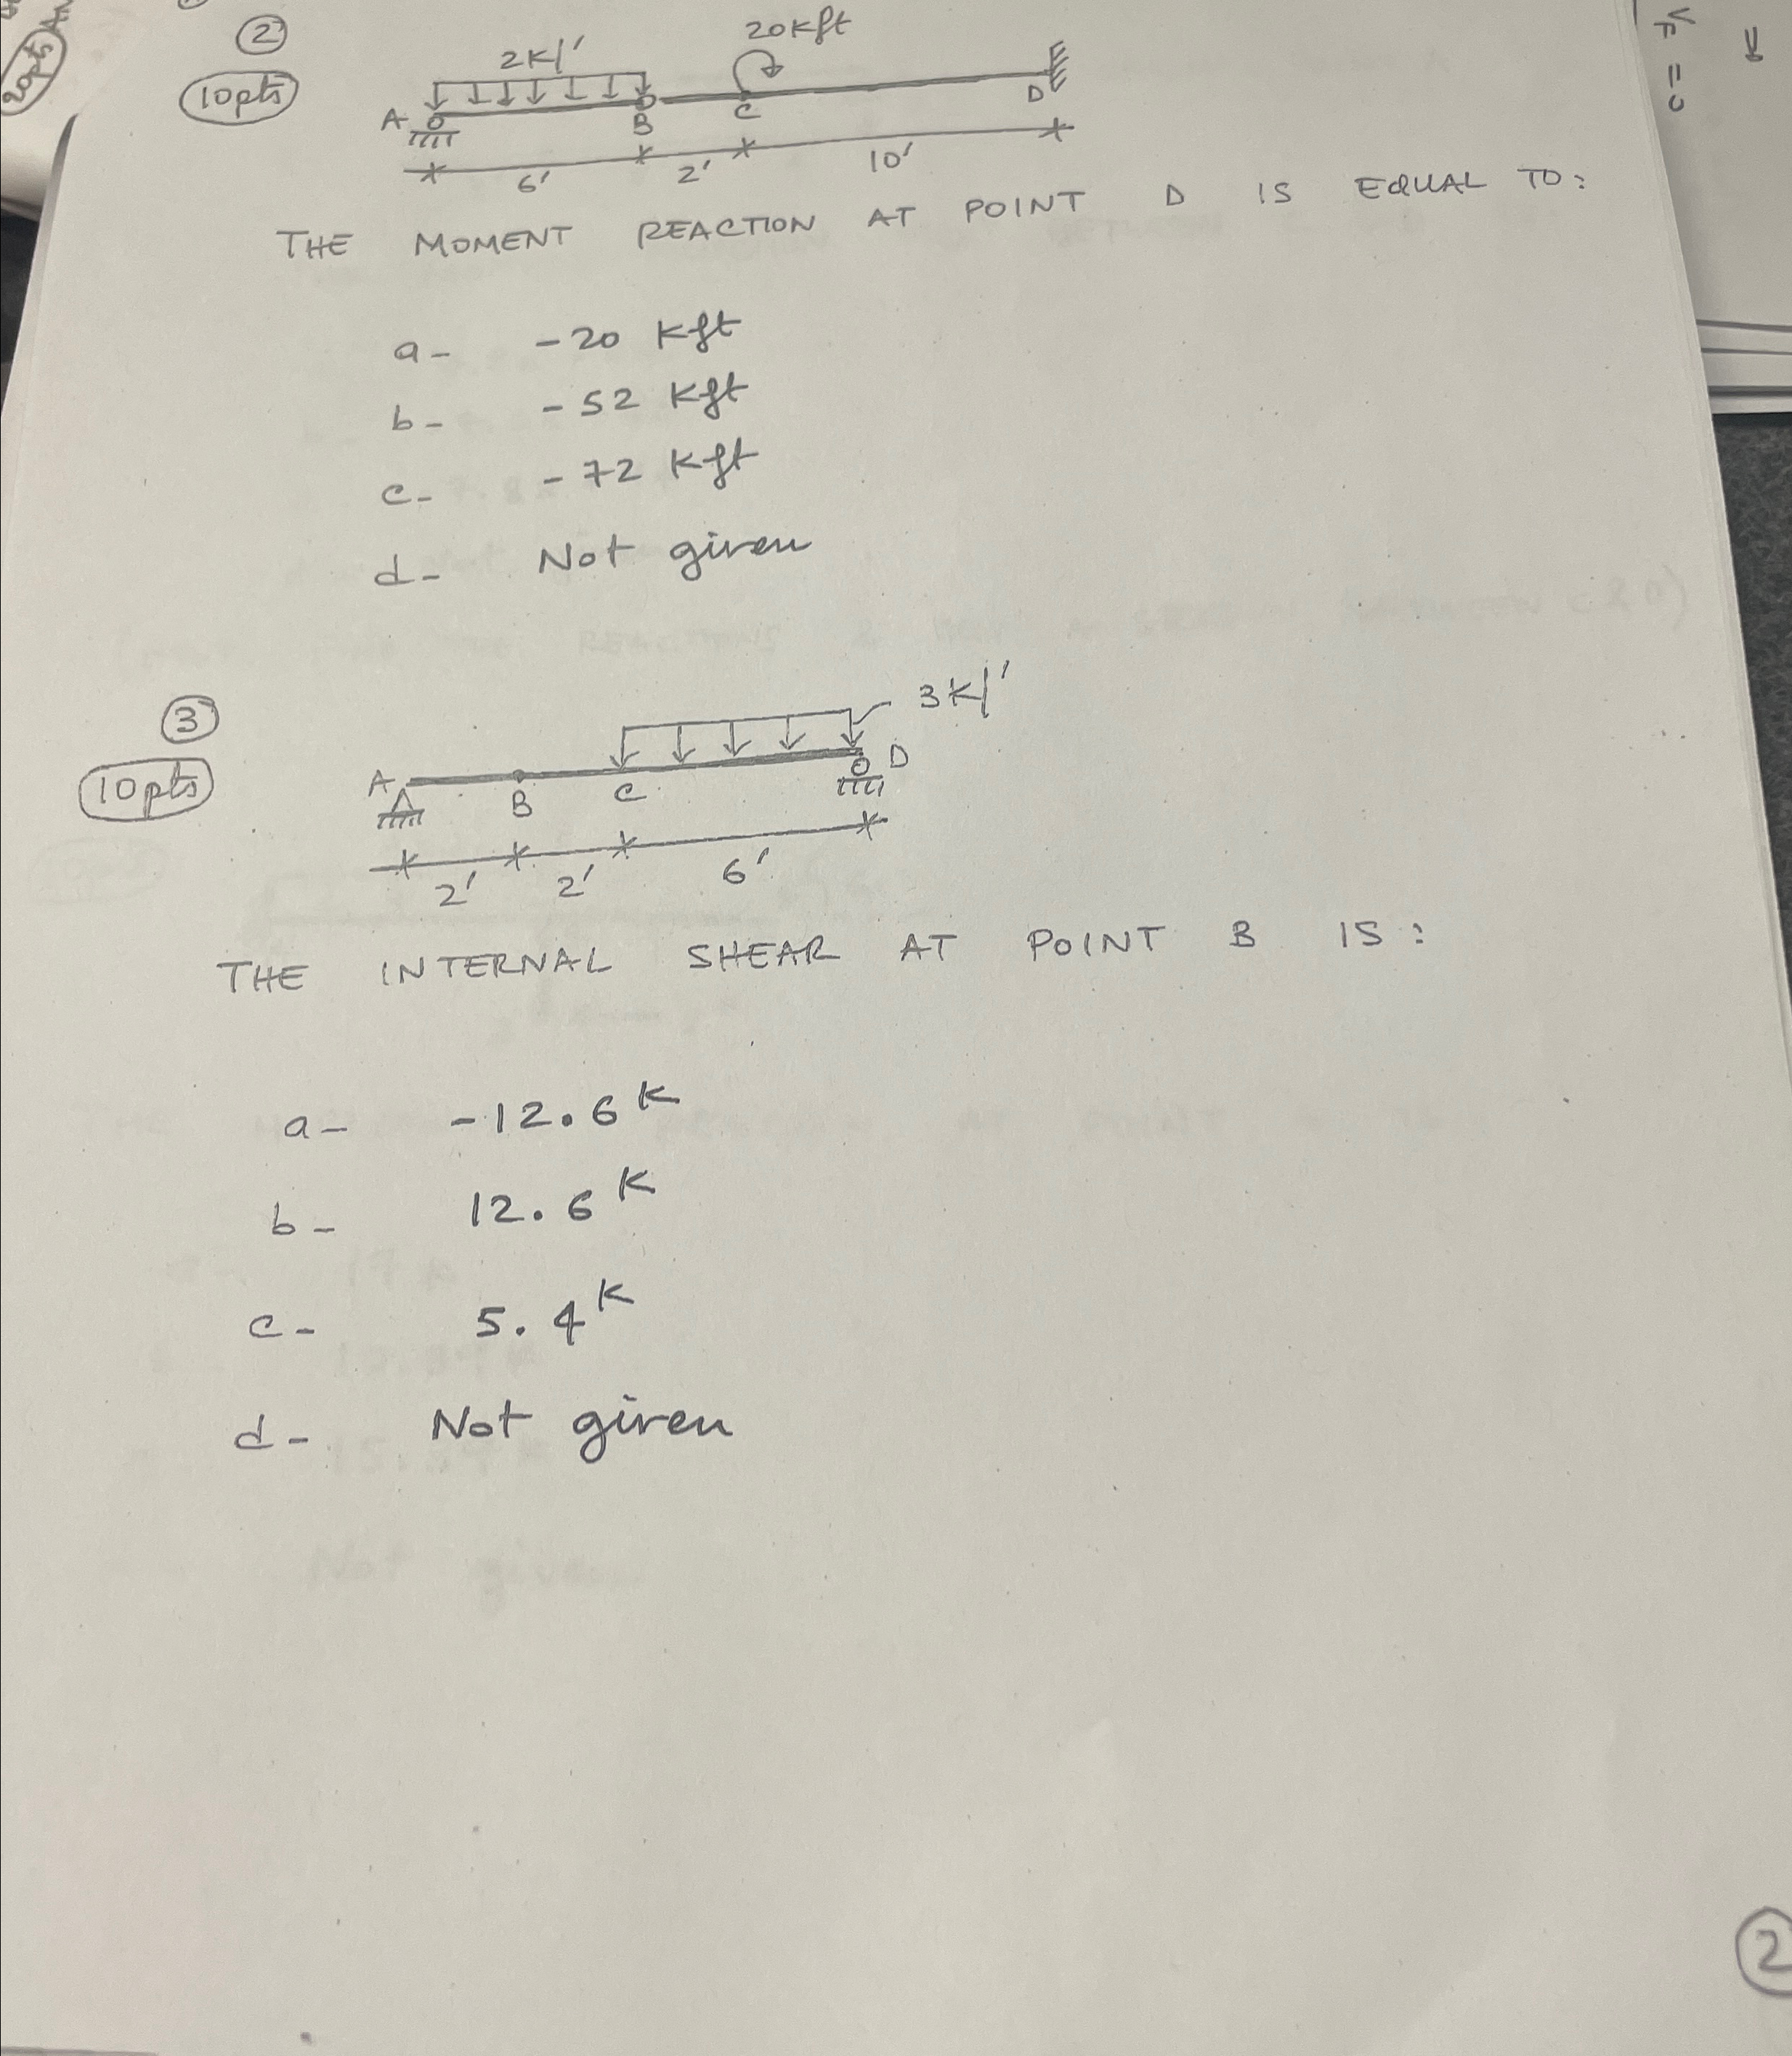 20pts
②
10pts
2K/'
20Kft
A
B
C
D
6'
2'
10'
THE MOMENT REACTION AT POINT D IS EQUAL TO:
a- -20 Kft
b- -52 Kft
c- -72 Kft
d- Not given
③
10pts
3K/'
A
B
C
D
2'
2'
6'
THE INTERNAL SHEAR AT POINT B IS:
a- -12.6K
b- 12.6K
c- 5.4K
d- Not given
②